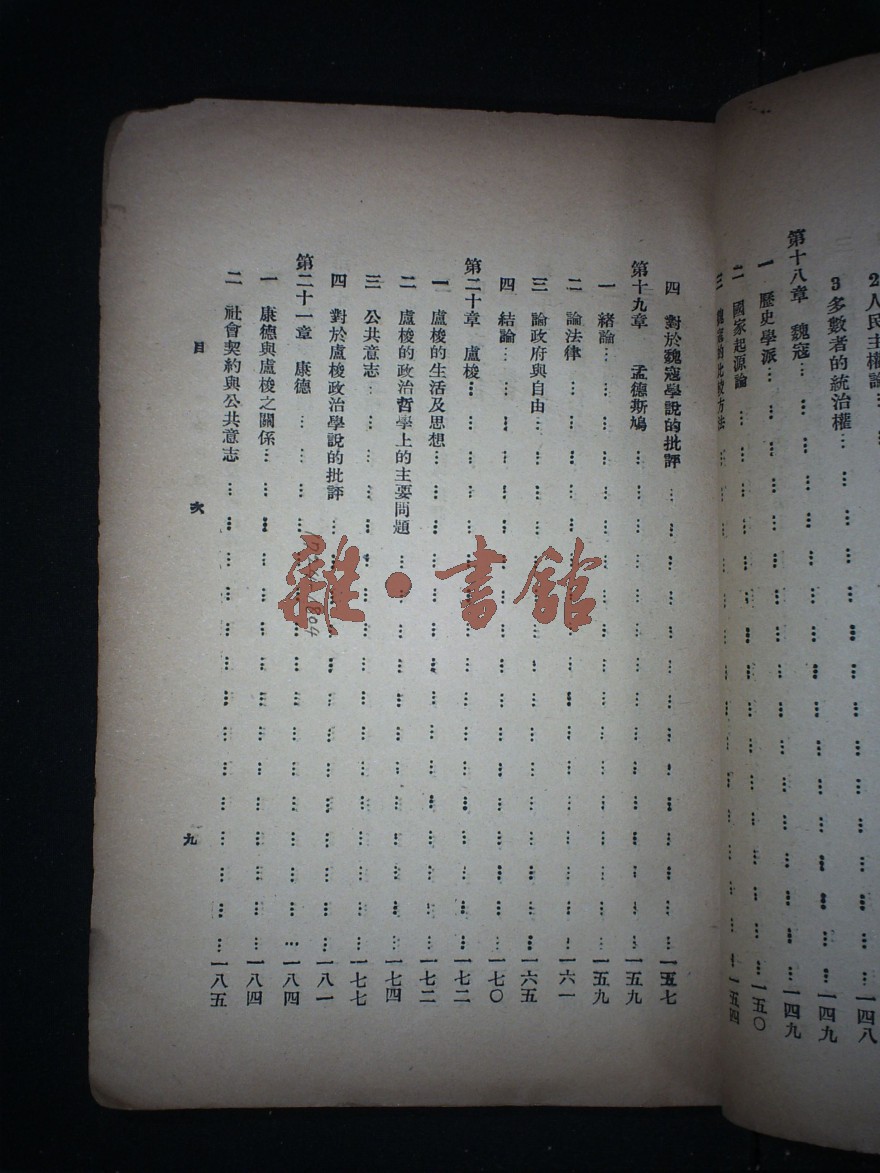 2 人民主權論 … … 一四八
3 多數者的統治權 … … 一四九
第十八章　魏寇 … … 一四九
一　歷史學派 … … 一五〇
二　國家起源論 … … 一五四
三　魏寇的比較方法 … …
四　對於魏寇學說的批評 … … 一五七
第十九章　孟德斯鳩 … … 一五九
一　緒論 … … 一五九
二　論法律 … … 一六一
三　論政府與自由 … … 一六五
四　結論 … … 一七〇
第二十章　盧梭 … … 一七二
一　盧梭的生活及思想 … … 一七二
二　盧梭的政治哲學上的主要問題 … … 一七四
三　公共意志 … … 一七七
四　對於盧梭政治學說的批評 … … 一八一
第二十一章　康德 … … 一八四
一　康德與盧梭之關係 … … 一八四
二　社會契約與公共意志 … … 一八五
目　次
九
雜·書館